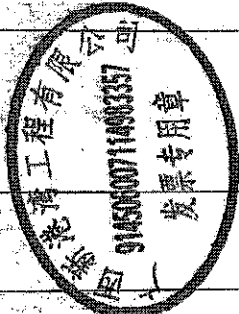 广西新港湾工程有限公司
914506007114983357
发票专用章